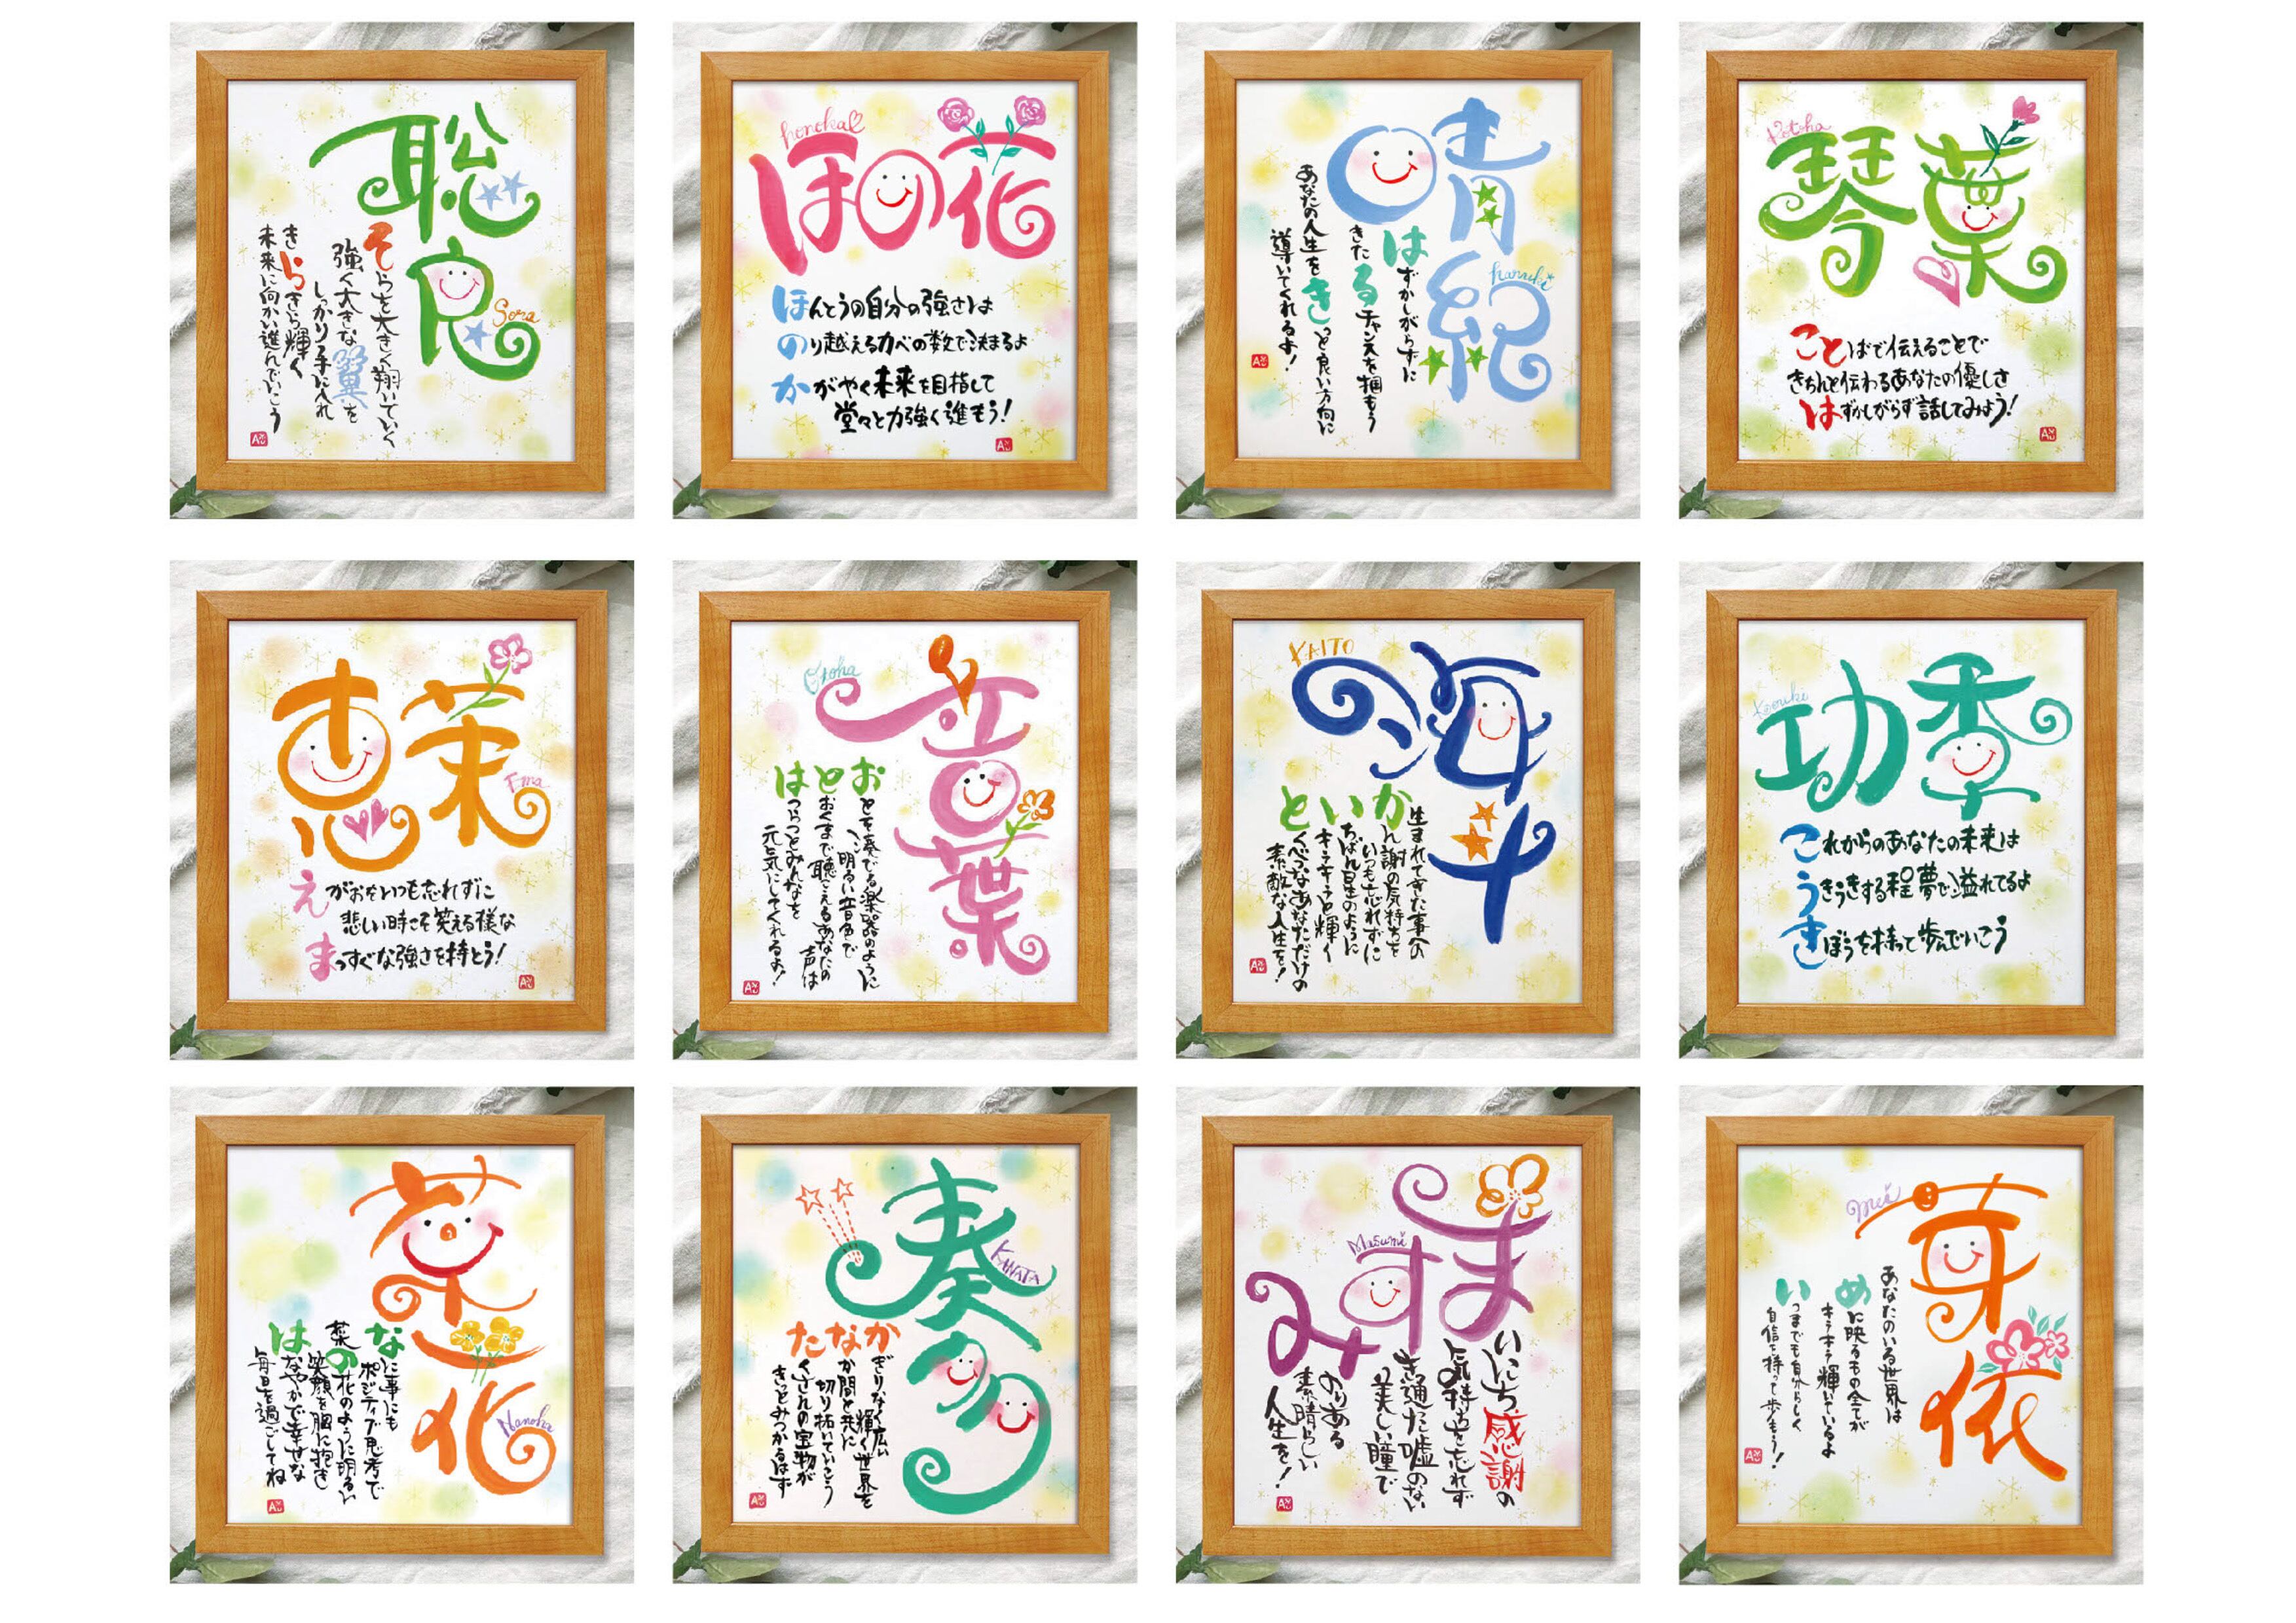 聡良
Sora
そらを大きく翔いていく
強く大きな翼を
しっかり手に入れ
きらきら輝く
未来に向かい進んでいこう
honoka
ほの花
ほんとうの自分の強さは
のり越えるカベの数で決まるよ
かがやく未来を目指して
堂々と力強く進もう!
晴紀
haruki
はずかしがらずに
きたるチャンスを掴もう
あなたの人生をきっと良い方向に
導いてくれるよ!
Kotoha
琴葉
ことばで伝えることで
きちんと伝わるあなたの優しさ
はずかしがらず話してみよう!
恵茉
Ema
えがおをいつも忘れずに
悲しい時こそ笑える様な
まっすぐな強さを持とう!
Otoha
音葉
おとはをとを奏でる楽器のように
明るい音色で
おくまで聴こえるあなたの声は
つらつとみんなを
元気にしてくれるよ!
KAITO
海斗
かいと
生まれてきた事への
ん謝の気持ちを
いつも忘れずに
ちばん星のように
キラキラと輝く
くべつなあなただけの
素敵な人生を!
Kouki
功季
これからのあなたの未来は
うきうきする程夢で溢れてるよ
きぼうを持って歩んでいこう
菜花
Nanoha
なに事にも
ポジティブ思考で
菜の花のように明るい
笑顔を胸に抱き
はなやかで幸せな
毎日を過ごしてね
奏多
KANATA
かなた
ぎりなく広い
輝く世界を
か間と共に
切り拓いていこう
くさんの宝物が
きっとみつかるはず
ますみ
Masumi
いにち感謝の
気持ちを忘れず
き通った嘘のない
美しい瞳で
のりある
素晴らしい
人生を!
Mei
芽依
あなたのいる世界は
めに映るもの全てが
キラキラ輝いているよ
いつまでも自分らしく
自信を持って歩もう!